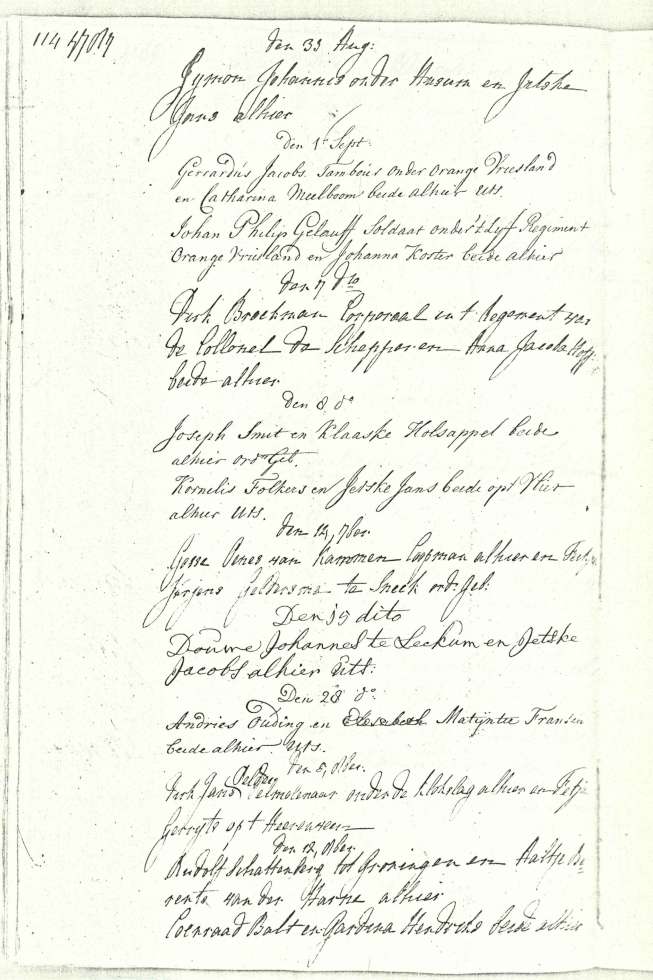 114
den 33 Aug:
Symon Johannis onder Husum en Jetske
Jans alhier
Den 1 Sept
Gerrardus Jacobs Tambour onder Orange Vriesland
en Catharina Meelboom beide alhier Uts.
Johan Philip Gelauff Soldaat onder 't Lyf Regiment
Orange Vriesland en Johanna Koster beide alhier
den 7 dto
Dirk Broekman Corporaal in t Regement van
de Collonel de Schepper en Anna Jacoba Hoff
beide alhier
den 8 do
Joseph Smit en Klaaske Holsappel beide
alhier ord Geb.
Kornelis Folkers en Jetske Jans beide opt Vliet
alhier Uts.
den 12, 7ber.
Gosse Oenes van Kammen Coopman alhier en
Jurjens Geldersma te Sneek ord: Geb:
Den 19 dito
Douwe Johannes te Leckum en Jetske
Jacobs alhier Uts:
Den 28 do
Andries Ouding en Elisabeth Matyntie Fransen
beide alhier Uts.
den 5, 8ber.
Dirk Jans Pelmolenaar onder de Klokslag alhier en Fetje
Gerryts opt Heerenveen
den 12, 8ber.
Rudolf Schattenberg tot Groningen en Aaltje Be-
rents van der Harne alhier
Coenraad Balt en Gardina Hendriks beide alhier